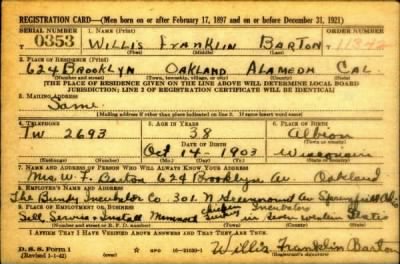 REGISTRATION CARD—(Men born on or after February 17, 1897 and on or before December 31, 1921)
SERIAL NUMBER 1. NAME (Print) ORDER NUMBER
0353 WILLIS FRANKLIN BARTON 11342
(First) (Middle) (Last)
2. PLACE OF RESIDENCE (Print)
624 BROOKLYN OAKLAND ALAMEDA CAL.
(Number and street) (Town, township, village, or city) (County) (State)
[THE PLACE OF RESIDENCE GIVEN ON THE LINE ABOVE WILL DETERMINE LOCAL BOARD
JURISDICTION; LINE 2 OF REGISTRATION CERTIFICATE WILL BE IDENTICAL]
3. MAILING ADDRESS
Same
[Mailing address if other than place indicated on line 2. If same insert word same]
4. TELEPHONE 5. AGE IN YEARS 6. PLACE OF BIRTH
TW 2693 38 Albion
DATE OF BIRTH (Town or county)
Oct 14 - 1903 Wisconsin
(Exchange) (Number) (Mo.) (Day) (Yr.) (State or country)
7. NAME AND ADDRESS OF PERSON WHO WILL ALWAYS KNOW YOUR ADDRESS
Mrs. W. F. Barton 624 Brooklyn Av Oakland
8. EMPLOYER'S NAME AND ADDRESS
The Bundy Incubator Co. 301 N Greenmount Av Springfield Ohio
9. PLACE OF EMPLOYMENT OR BUSINESS
Sell, Service & Install Mammoth Chicken Turkey Incubators in Seven western States
(Number and street or R. F. D. number) (Town) (County) (State)
I AFFIRM THAT I HAVE VERIFIED ABOVE ANSWERS AND THAT THEY ARE TRUE.
D. S. S. Form 1
(Revised 1-1-42) GPO 16—21630-1
Willis Franklin Barton